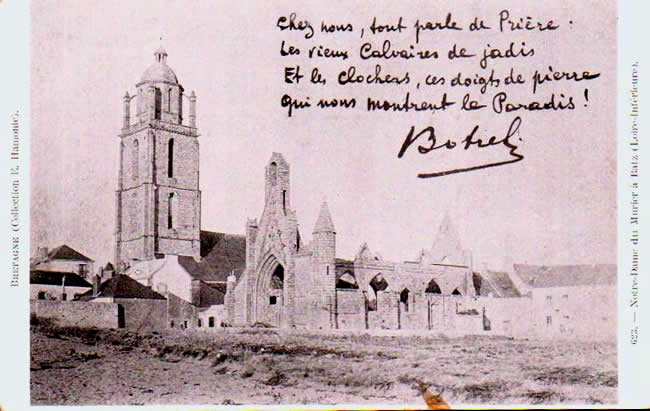 Chez nous, tout parle de Prière :
Les vieux Calvaires de jadis
Et les clochers, ces doigts de pierre
Qui nous montrent le Paradis !
Botrel
BRETAGNE (Collection E. Hamonic).
623. — Notre-Dame du Murier à Batz (Loire-Inférieure).